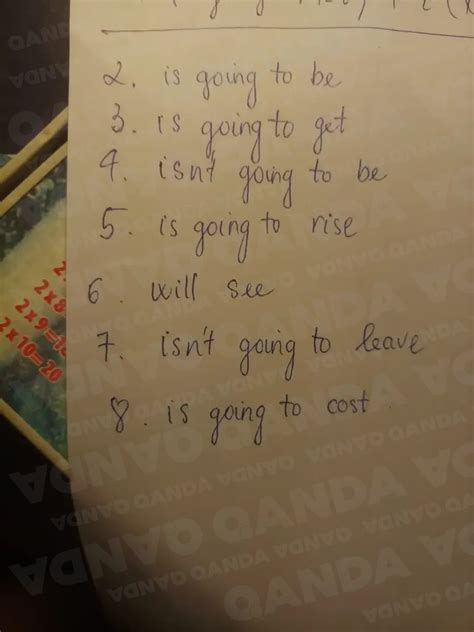 2. is going to be
3. is going to get
4. isn't going to be
5. is going to rise
6. will see
7. isn't going to leave
8. is going to cost
2×8
2×9=18
2×10=20
QANDA